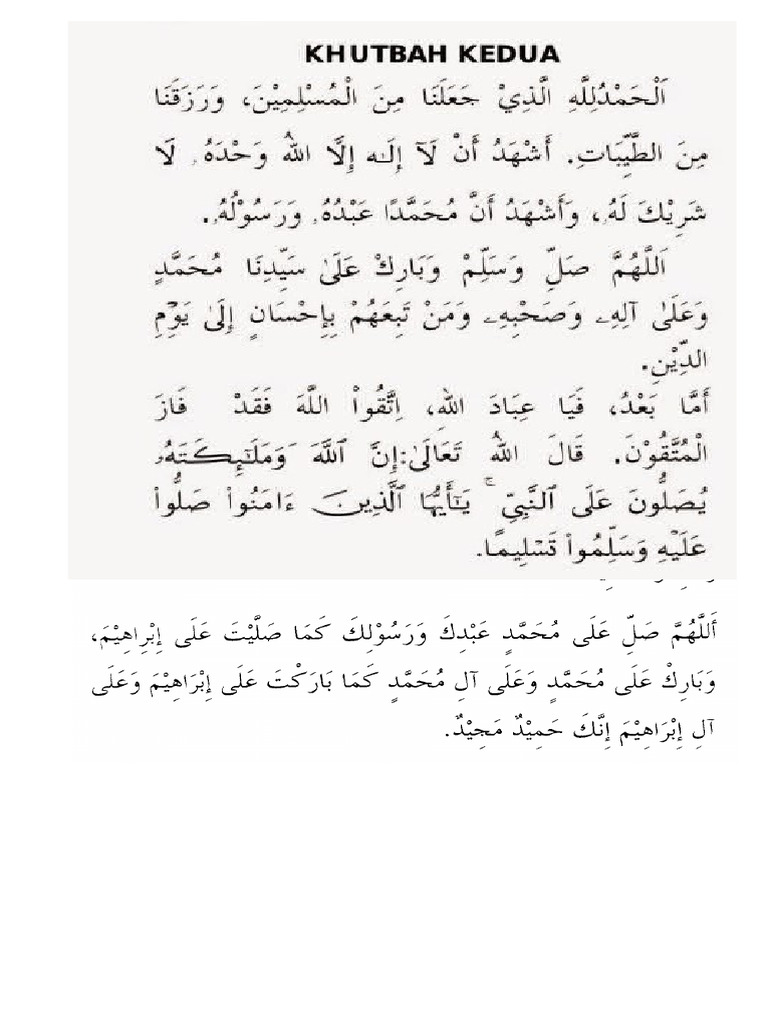 KHUTBAH KEDUA
اَلْحَمْدُلِلَّهِ الَّذِيْ جَعَلَنَا مِنَ الْمُسْلِمِيْنَ، وَرَزَقَنَا
مِنَ الطَّيِّبَاتِ. أَشْهَدُ أَنْ لَآ إِلَـٰه إِلَّا اللهُ وَحْدَهُۥ لَا
شَرِيْكَ لَهُۥ، وَأَشْهَدُ أَنَّ مُحَمَّدًا عَبْدُهُۥ وَرَسُوْلُهُۥ.
اَللَّهُمَّ صَلِّ وَسَلِّمْ وَبَارِكْ عَلَىٰ سَيِّدِنَا مُحَمَّدٍ
وَعَلَىٰ آلِهِۦ وَصَحْبِهِۦ وَمَنْ تَبِعَهُمْ بِإِحْسَانٍ إِلَىٰ يَوْمِ
الدِّيْنِ.
أَمَّا بَعْدُ، فَيَا عِبَادَ اللهِ، اِتَّقُواْ اللَّهَ فَقَدْ فَازَ
الْمُتَّقُوْنَ. قَالَ اللهُ تَعَالَىٰ:إِنَّ ٱللَّهَ وَمَلَـٰٓئِكَتَهُۥ
يُصَلُّونَ عَلَى ٱلنَّبِىِّ ۚ يَـٰٓأَيُّهَا ٱلَّذِينَ ءَامَنُواْ صَلُّواْ
عَلَيْهِ وَسَلِّمُواْ تَسْلِيمًا.
أَللَّهُمَّ صَلِّ عَلَى مُحَمَّدٍ عَبْدِكَ وَرَسُوْلِكَ كَمَا صَلَّيْتَ عَلَى إِبْرَاهِيْمَ،
وَبَارِكْ عَلَى مُحَمَّدٍ وَعَلَى آلِ مُحَمَّدٍ كَمَا بَارَكْتَ عَلَى إِبْرَاهِيْمَ وَعَلَى
آلِ إِبْرَاهِيْمَ إِنَّكَ حَمِيْدٌ مَجِيْدٌ.